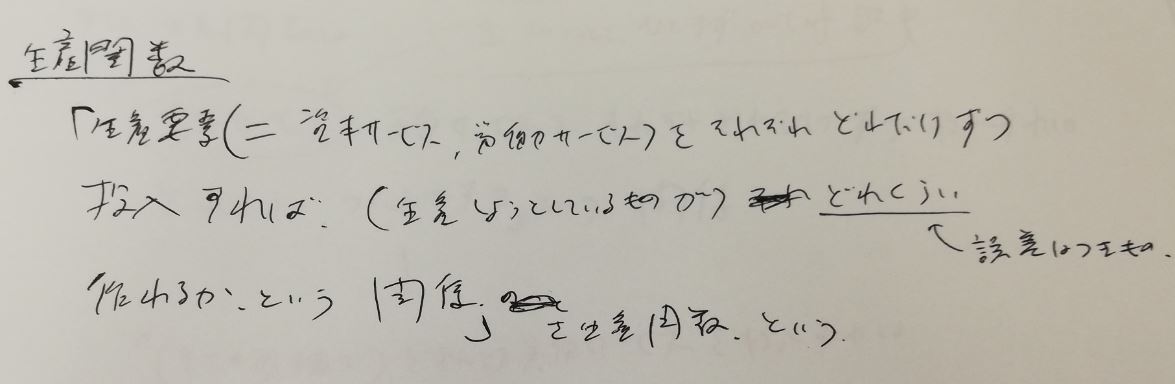 生産関数
「生産要素(=資本サービス,労働力サービス)をそれぞれどれだけずつ
投入すれば、(生産しようとしているものが)どれくらい
誤差はつきもの.
作れるか、という関係」を生産関数、という.